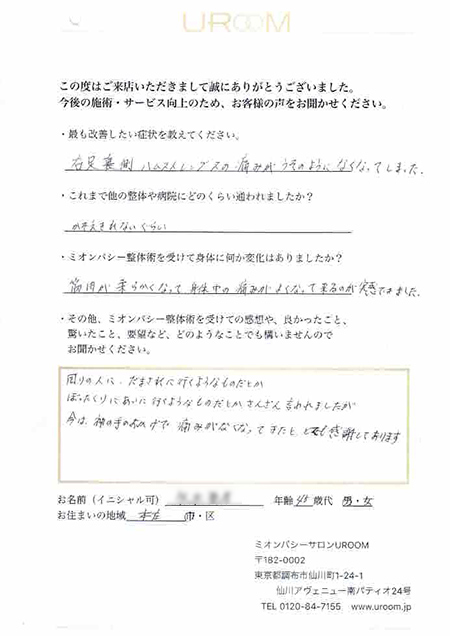 UROOM
この度はご来店いただきまして誠にありがとうございました。
今後の施術・サービス向上のため、お客様の声をお聞かせください。
・最も改善したい症状を教えてください。
右足裏側 ハムストレングスの痛みがうそのようになくなってしまった。
・これまで他の整体や病院にどのくらい通われましたか？
かぞえきれないくらい
・ミオンパシー整体術を受けて身体に何か変化はありましたか？
筋肉が柔らかくなって身体中の痛みがよくなって来るのが実感できました。
・その他、ミオンパシー整体術を受けての感想や、良かったこと、
驚いたこと、要望など、どのようなことでも構いませんので
お聞かせください。
周りの人に、だまされに行くようなものだとか
ぼったくりにあいに行くようなものだとかさんざん言われましたが
今は、神の手のおかげで 痛みがなくなってきたと、とても感謝しております
お名前（イニシャル可） 年齢 45 歳代 男・女
お住まいの地域 市・区
ミオンパシーサロンUROOM
〒182-0002
東京都調布市仙川町1-24-1
仙川アヴェニュー南パティオ24号
TEL 0120-84-7155 www.uroom.jp